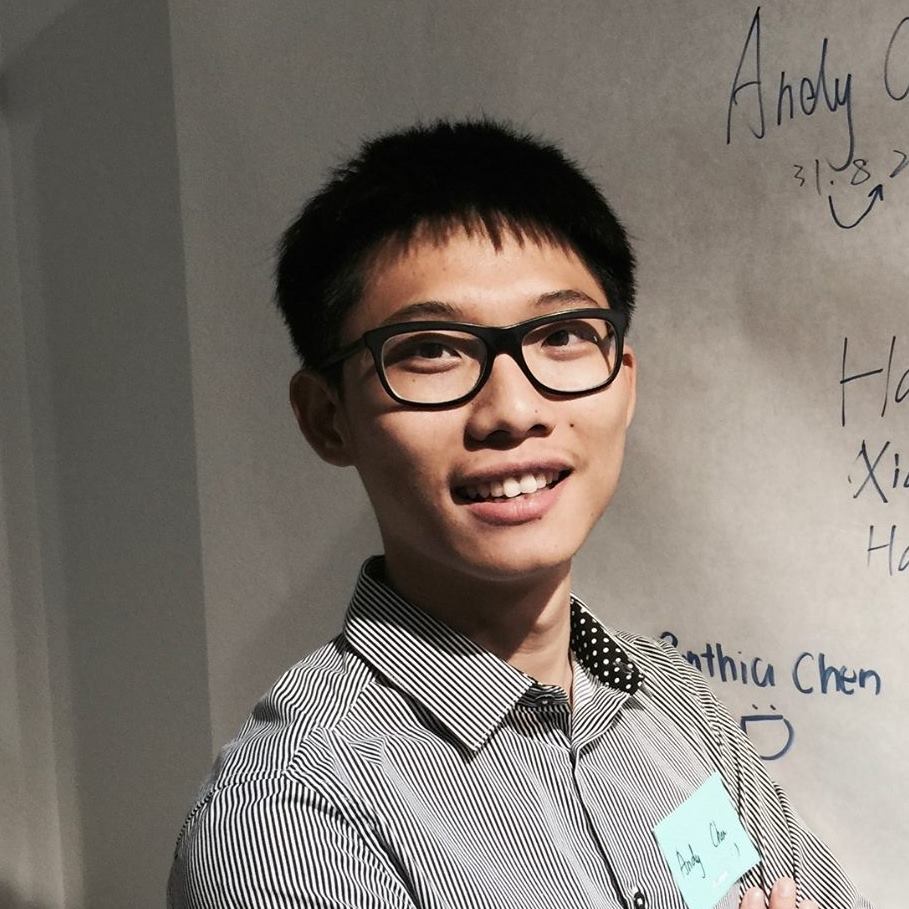 Andy C
31.8.2
Ha
Xia
Ha
Cynthia Chen
Andy Chen
:)